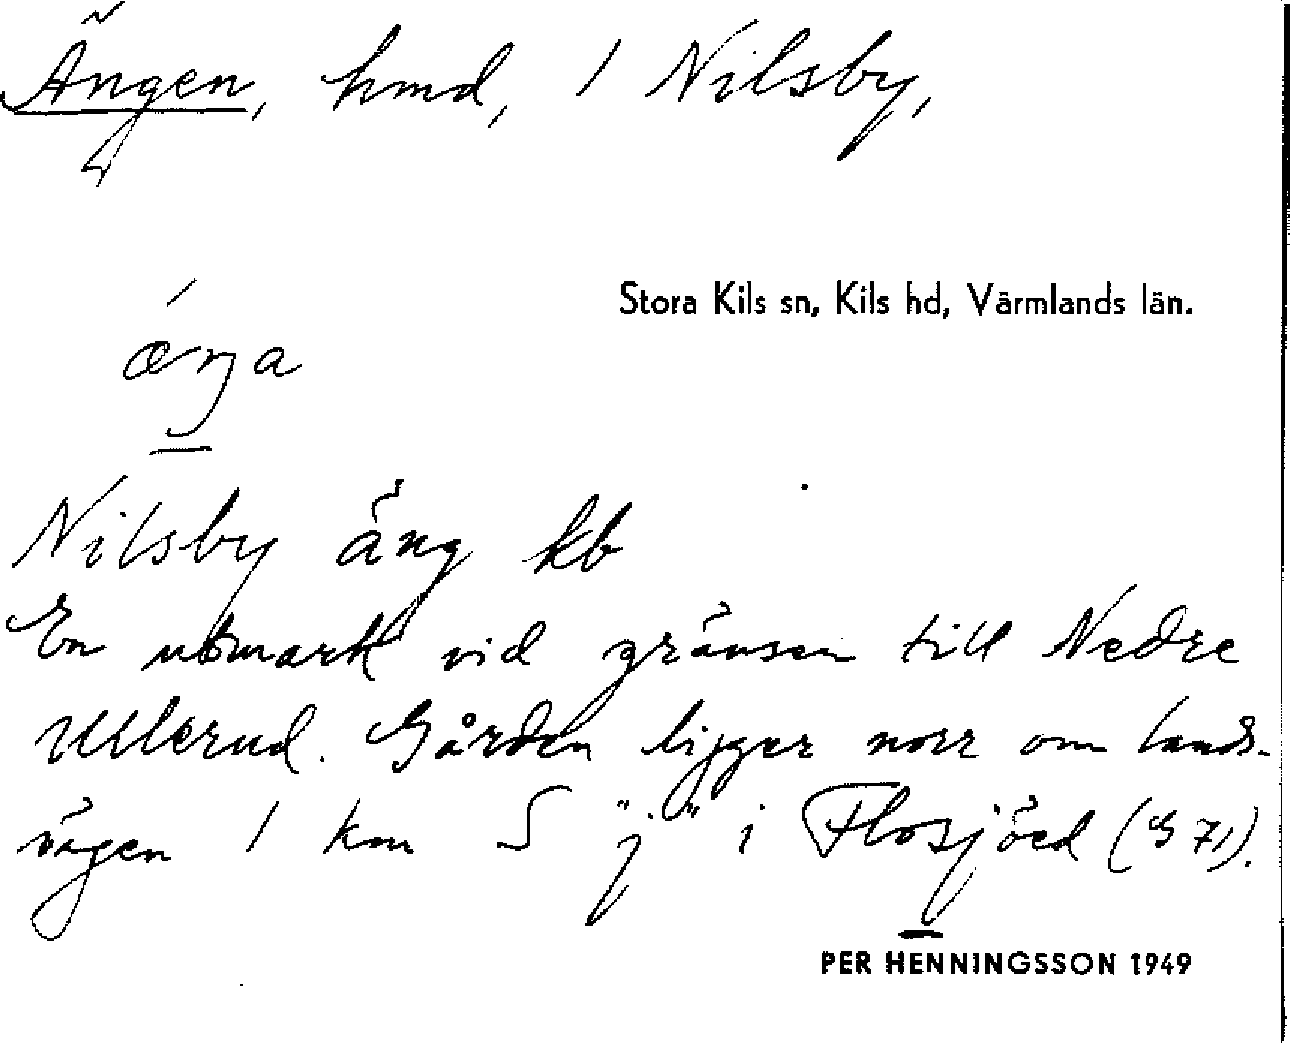 Ängen, hmd, 1 Nilsby,
Stora Kils sn, Kils hd, Värmlands län.
Nilsby äng kb
En utmark vid gränsen till Nedre
Ullerud. Gården ligger norr om lands-
vägen 1 km S "j" i Flosjöed (G 71).
PER HENNINGSSON 1949